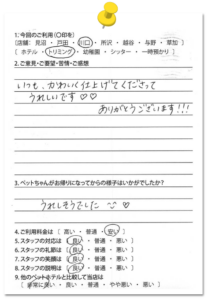 1.今回のご利用(〇印を)
[店舗: 見沼 ・ 戸田 ・ 川口 ・ 所沢 ・ 越谷 ・ 与野 ・ 草加 ]
[ ホテル ・ トリミング ・ 幼稚園 ・ シッター ・ 一時預かり ]
2.ご意見・ご要望・苦情・ご感想
いつも、かわいく仕上げてくださって
うれしいです♡♡
ありがとうございます!!!
3.ペットちゃんがお帰りになってからの様子はいかがでしたか?
うれしそうでした
4.ご利用料金は [ 高い ・ 普通 ・ 安い ]
5.スタッフの対応は [ 良い ・ 普通 ・ 悪い ]
6.スタッフの礼節は [ 良い ・ 普通 ・ 悪い ]
7.スタッフの笑顔は [ 良い ・ 普通 ・ 悪い ]
8.スタッフの説明は [ 良い ・ 普通 ・ 悪い ]
9.他のペットホテルと比較して当店は
[ 非常に良い ・ 良い ・ 普通 ・ やや悪い ・ 悪い ]